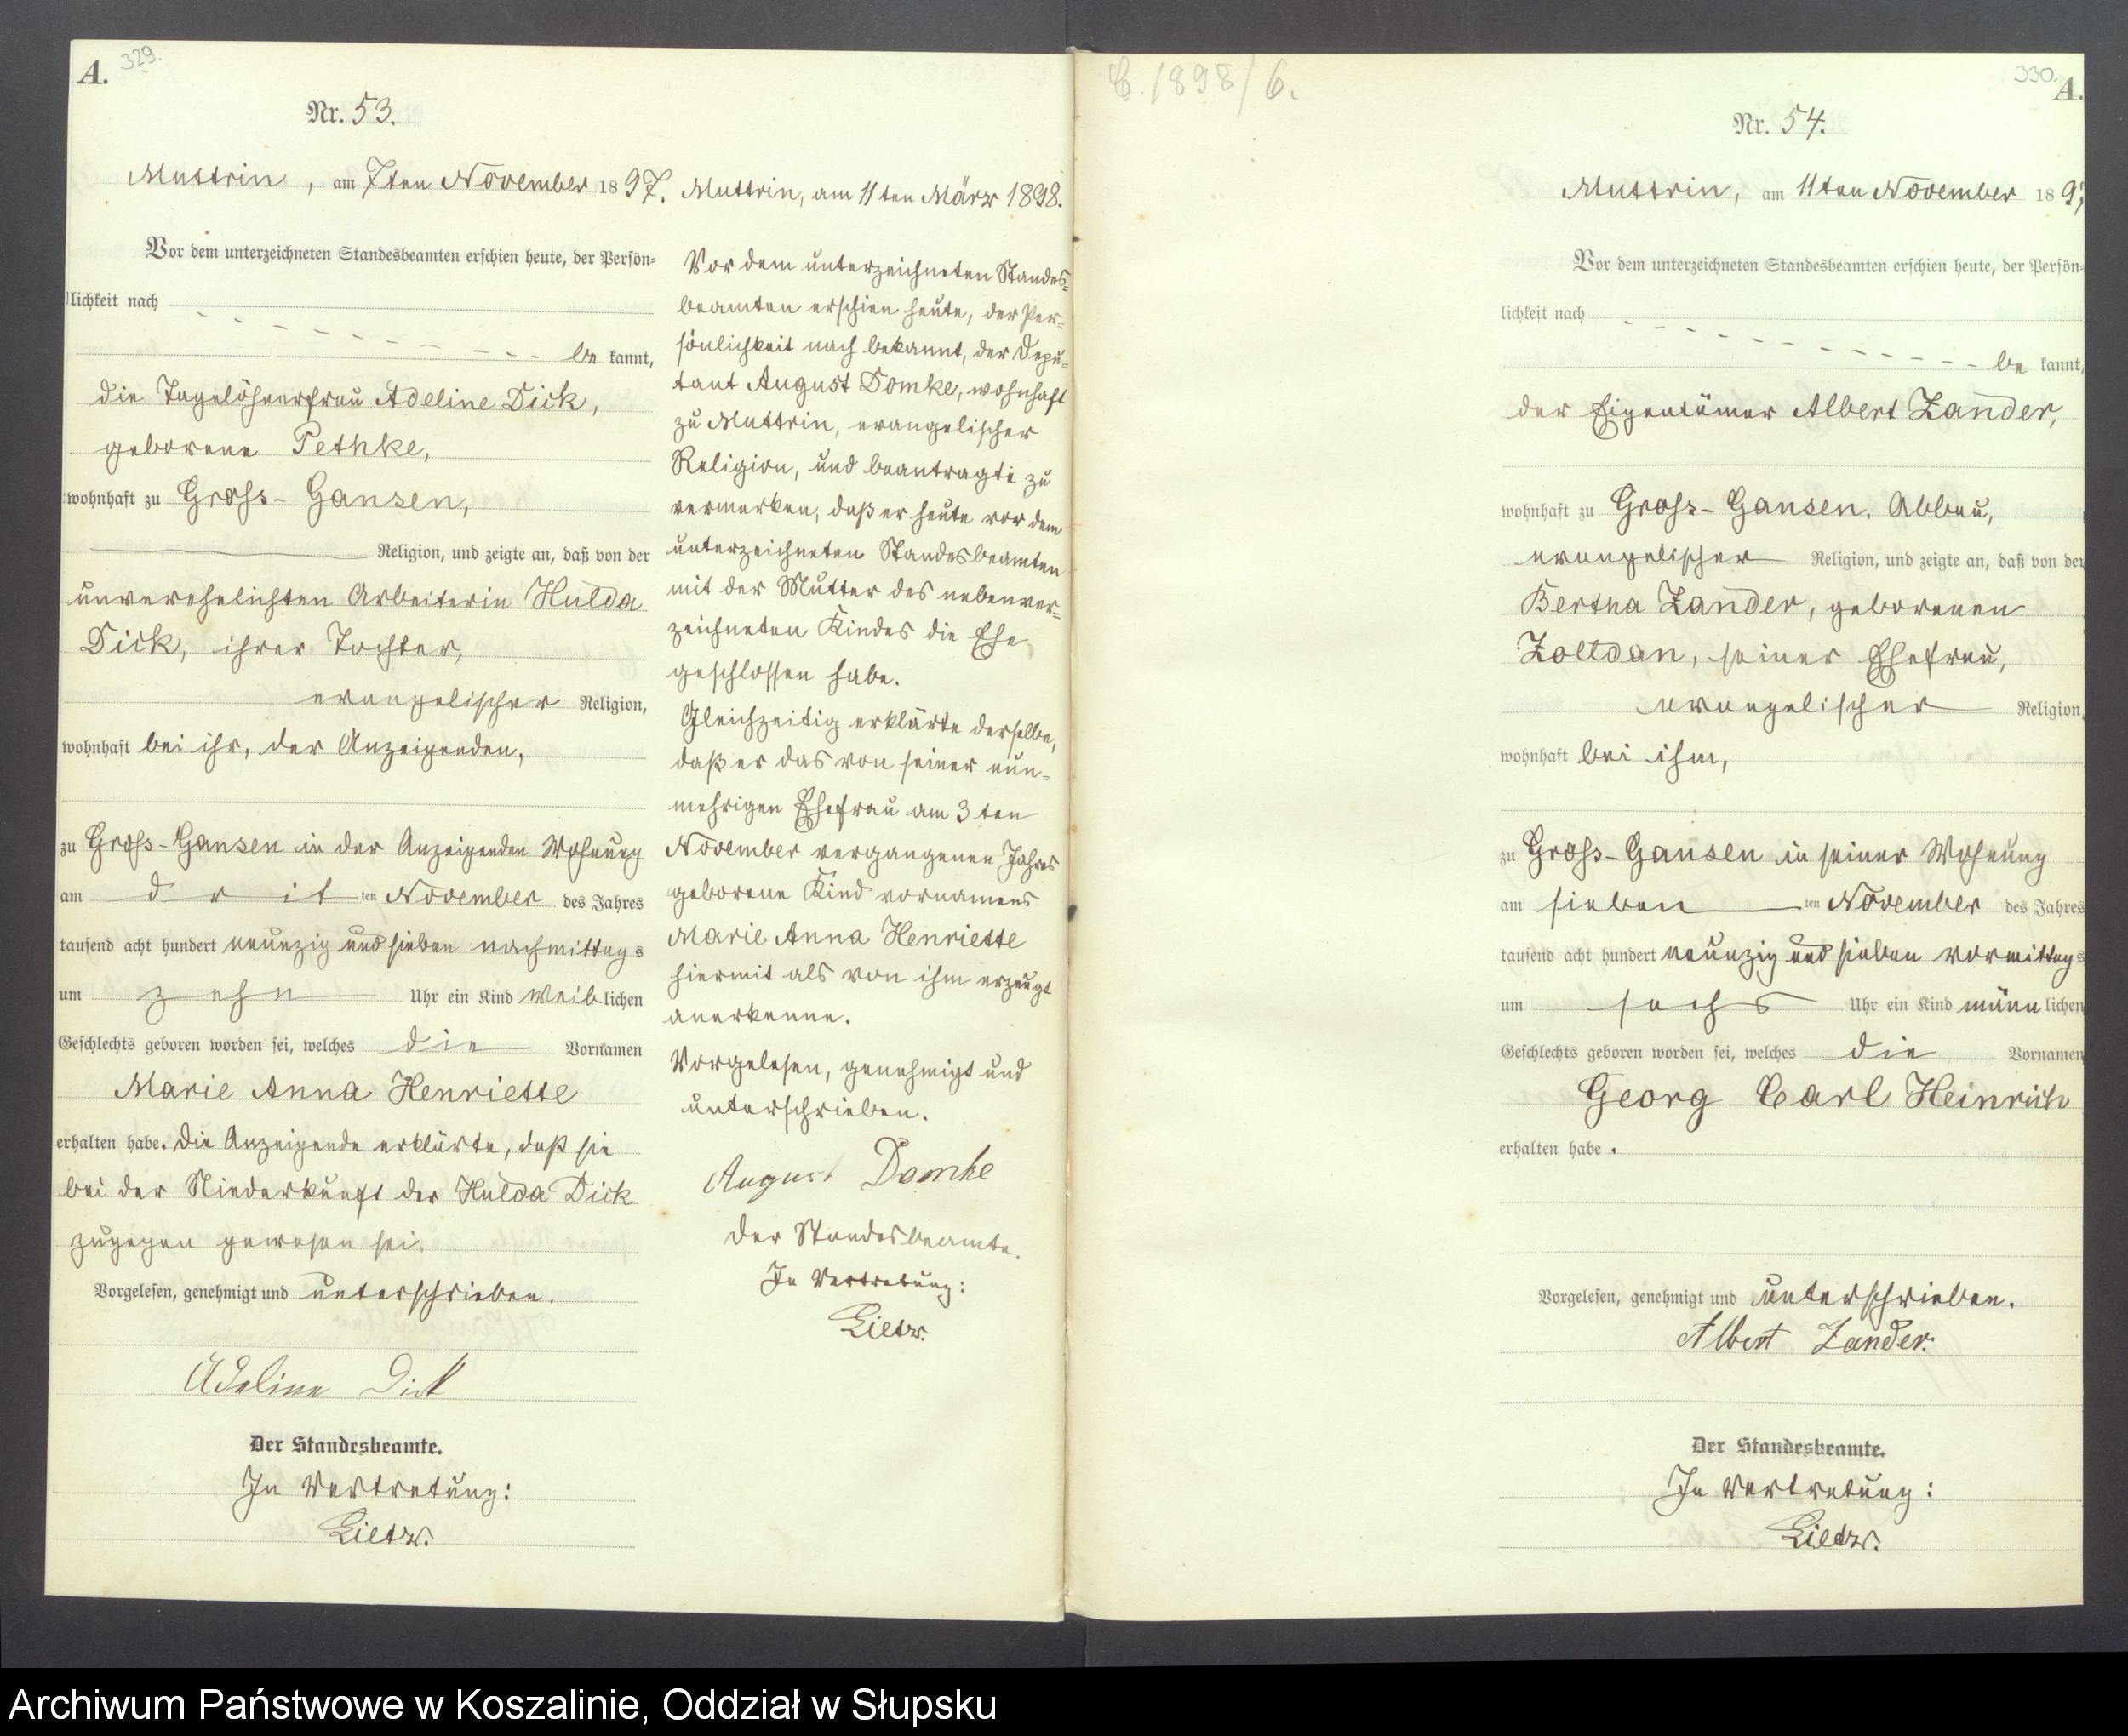 A. 329.
Nr. 53.
Muttrin, am 7ten November 1897.
Vor dem unterzeichneten Standesbeamten erschien heute, der Persön=
lichkeit nach
be kannt,
die Tagelöhnerfrau Adeline Dick,
geborene Pethke,
wohnhaft zu Gross-Gansen,
Religion, und zeigte an, daß von der
unverehelichten Arbeiterin Hulda
Dick, ihrer Tochter,
evangelischer Religion,
wohnhaft bei ihr, der Anzeigenden,
zu Gross-Gansen in der Anzeigenden Wohnung
am drit ten November des Jahres
tausend acht hundert neunzig und sieben nachmittags
um zehn Uhr ein Kind weiblichen
Geschlechts geboren worden sei, welches die Vornamen
Marie Anna Henriette
erhalten habe. Die Anzeigende erklärte, daß sie
bei der Niederkunft der Hulda Dick
zugegen gewesen sei.
Vorgelesen, genehmigt und unterschrieben.
Adeline Dick
Der Standesbeamte.
In Vertretung:
Lietz.
Muttrin, am 11ten März 1898.
Vor dem unterzeichneten Standes=
beamten erschien heute, der Per=
sönlichkeit nach bekannt, der Depu=
tant August Domke, wohnhaft
zu Muttrin, evangelischer
Religion, und beantragte zu
vermerken, daß er heute vor dem
unterzeichneten Standesbeamten
mit der Mutter des nebenver=
zeichneten Kindes die Ehe
geschlossen habe.
Gleichzeitig erklärte derselbe,
daß er das von seiner nun=
mehrigen Ehefrau am 3ten
November vergangenen Jahres
geborene Kind vornamens
Marie Anna Henriette
hiermit als von ihm erzeugt
anerkenne.
Vorgelesen, genehmigt und
unterschrieben.
August Domke
Der Standesbeamte.
In Vertretung:
Lietz.
C. 1898/6.
330. A.
Nr. 54.
Muttrin, am 11ten November 1897
Vor dem unterzeichneten Standesbeamten erschien heute, der Persön=
lichkeit nach
be kannt,
der Eigentümer Albert Zander,
wohnhaft zu Gross-Gansen, Abbau,
evangelischer Religion, und zeigte an, daß von der
Bertha Zander, geborenen
Zoltdan, seiner Ehefrau,
evangelischer Religion,
wohnhaft bei ihm,
zu Gross-Gansen in seiner Wohnung
am sieben ten November des Jahres
tausend acht hundert neunzig und sieben vormittags
um sechs Uhr ein Kind männlichen
Geschlechts geboren worden sei, welches die Vornamen
Georg Carl Heinrich
erhalten habe.
Vorgelesen, genehmigt und unterschrieben.
Albert Zander.
Der Standesbeamte.
In Vertretung:
Lietz.
Archiwum Państwowe w Koszalinie, Oddział w Słupsku